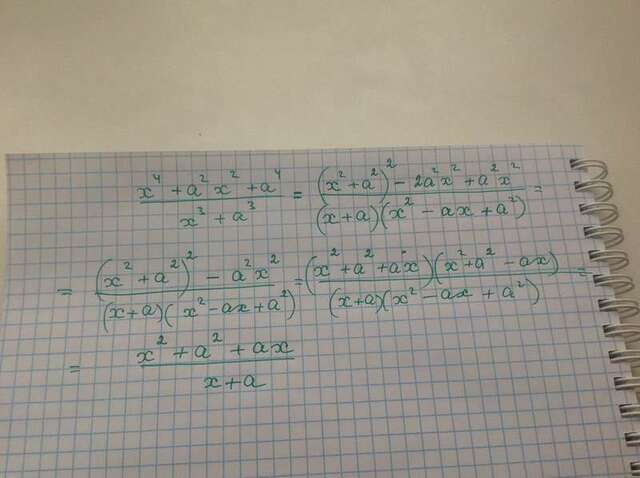 (x⁴ + a²x² + a⁴)/(x³ + a³) = ((x² + a²)² - 2a²x² + a²x²)/((x + a)(x² - ax + a²)) =
= ((x² + a²)² - a²x²)/((x + a)(x² - ax + a²)) = ((x² + a² + ax)(x² + a² - ax))/((x + a)(x² - ax + a²)) =
= (x² + a² + ax)/(x + a)